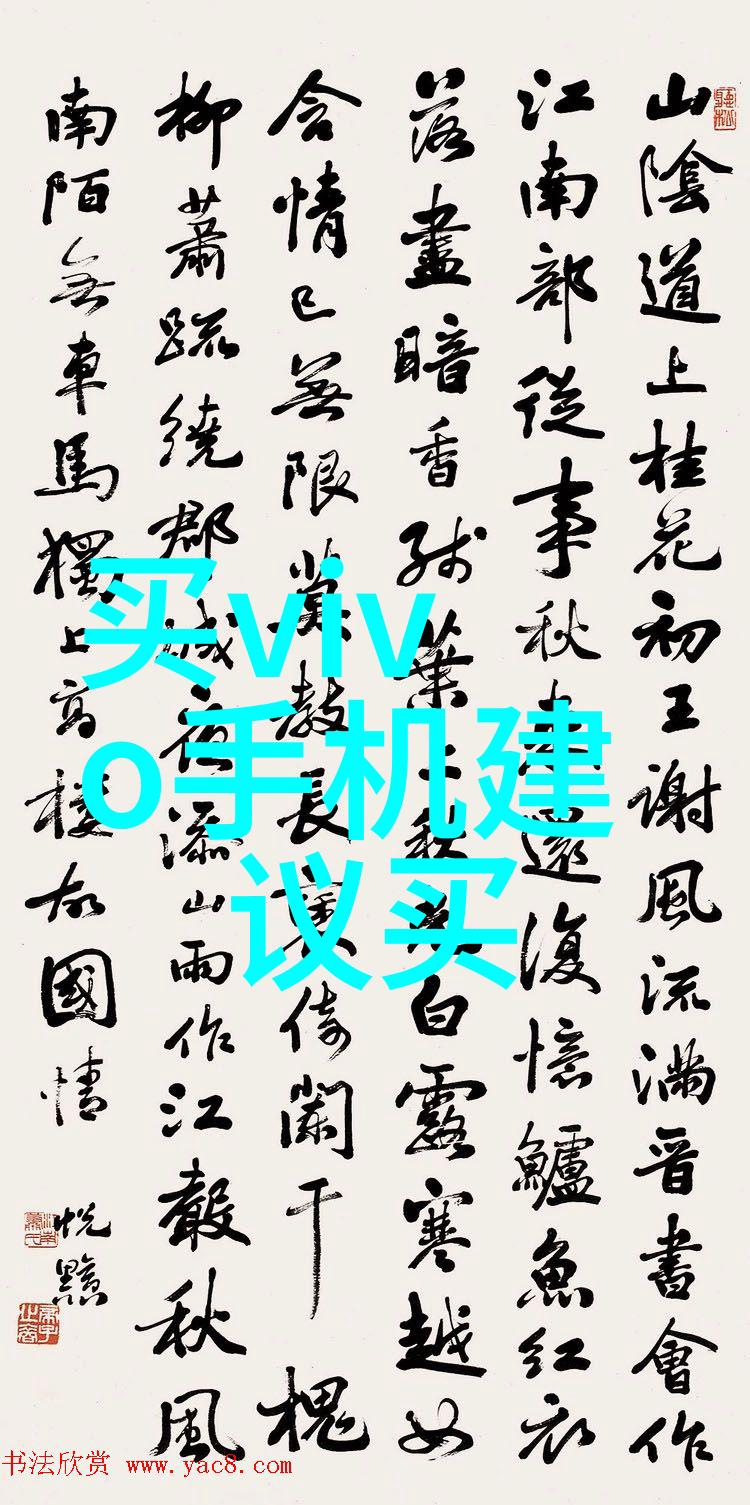 山陰道上桂花初王謝風流滿晉書會作
江南部從事秋來還復憶鱸魚紅衣
落盡暗香殘葉上秋光白露寒越女
含情已無限莫教長倚闌干 槐
柳蕭疏繞郡城夜添山雨作江聲秋風
南陌無車馬獨上高樓故國情
买viv
o手机建
议买
书法欣赏 www.yac8.com